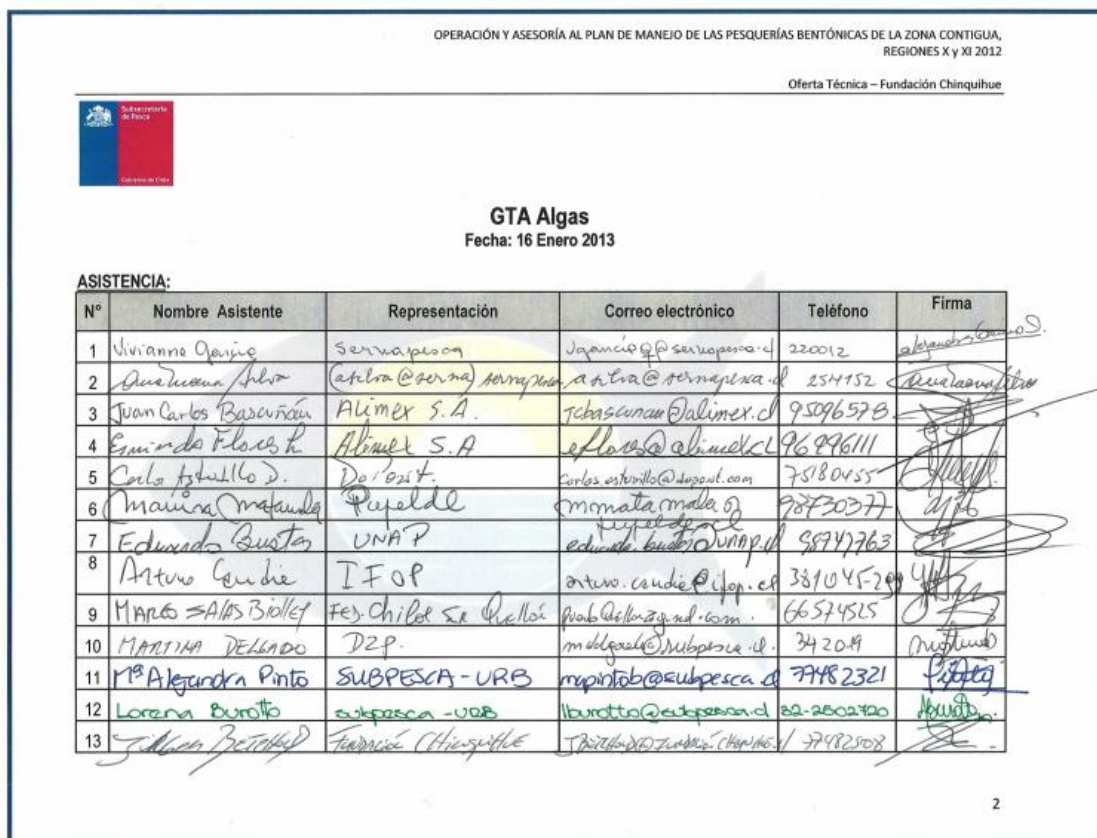 OPERACIÓN Y ASESORÍA AL PLAN DE MANEJO DE LAS PESQUERÍAS BENTÓNICAS DE LA ZONA CONTIGUA,
REGIONES X y XI 2012
Oferta Técnica – Fundación Chinquihue
Subsecretaría
de Pesca
Gobierno de Chile
GTA Algas
Fecha: 16 Enero 2013
ASISTENCIA:
N° Nombre Asistente Representación Correo electrónico Teléfono Firma
1 Vivianne sernapesca 220012
2 Silva sernapesca asilva@sernapesca.cl 254152
3 Juan Carlos Bascuñán Alimex S.A. jcbascunan@alimex.cl 95096578
4 Flores h Alimex S.A eflores@alimex.cl 96296111
5 Carlos Astudillo D. 75180455
6 Marina Pupelde 98730377
7 Eduardo Bustos UNAP 95747763
8 Arturo Candia IFOP arturo.candie@ifop.cl
9 MARCO SALAS Biolley Fed. Chiloé 66574525
10 MARTINA DELGADO DZP. mdelgado@subpesca.cl. 342019
11 Mª Alejandra Pinto SUBPESCA-URB mpintob@subpesca.cl 77482321
12 Lorena Burotto subpesca-URB lburotto@subpesca.cl 32-2502720
13 Fundación Chinquihue 77482508
2